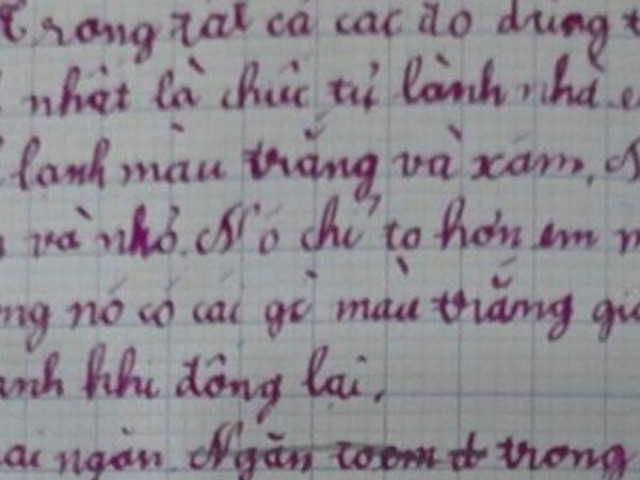 Trong tất cả các đồ dùng
nhất là chiếc tủ lành nhà
lanh màu trắng và xám. N
và nhỏ. Nó chỉ to hơn em
ng nó có cái gì màu trắng
anh khi đông lại.
ai ngăn Ngăn trong